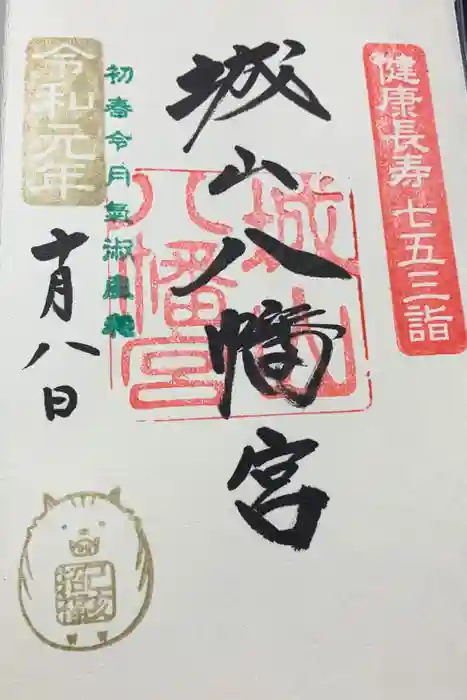 健康長寿 七五三詣
城山八幡宮
城山
八幡宮
初春令月氣淑風和
令和元年
十月八日
己亥
招福